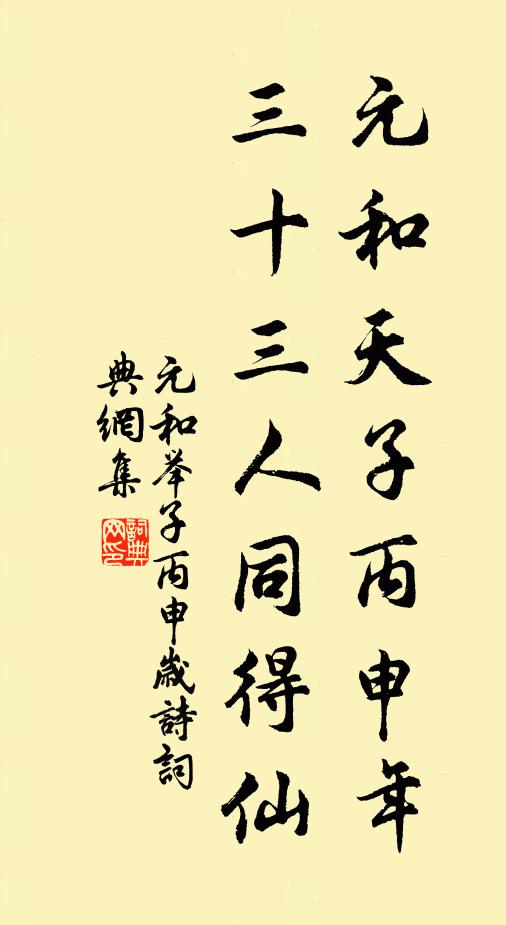 元和天子丙申年
三十三人同得仙
元和举子丙申歲詩詞
典網集
詞典網印